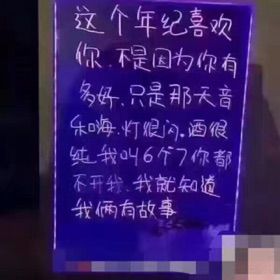 这个年纪喜欢
你.不是因为你有
多好.只是那天音
乐嗨.灯很闪.酒很
纯.我叫6个7你都
不开我.我就知道
我俩有故事